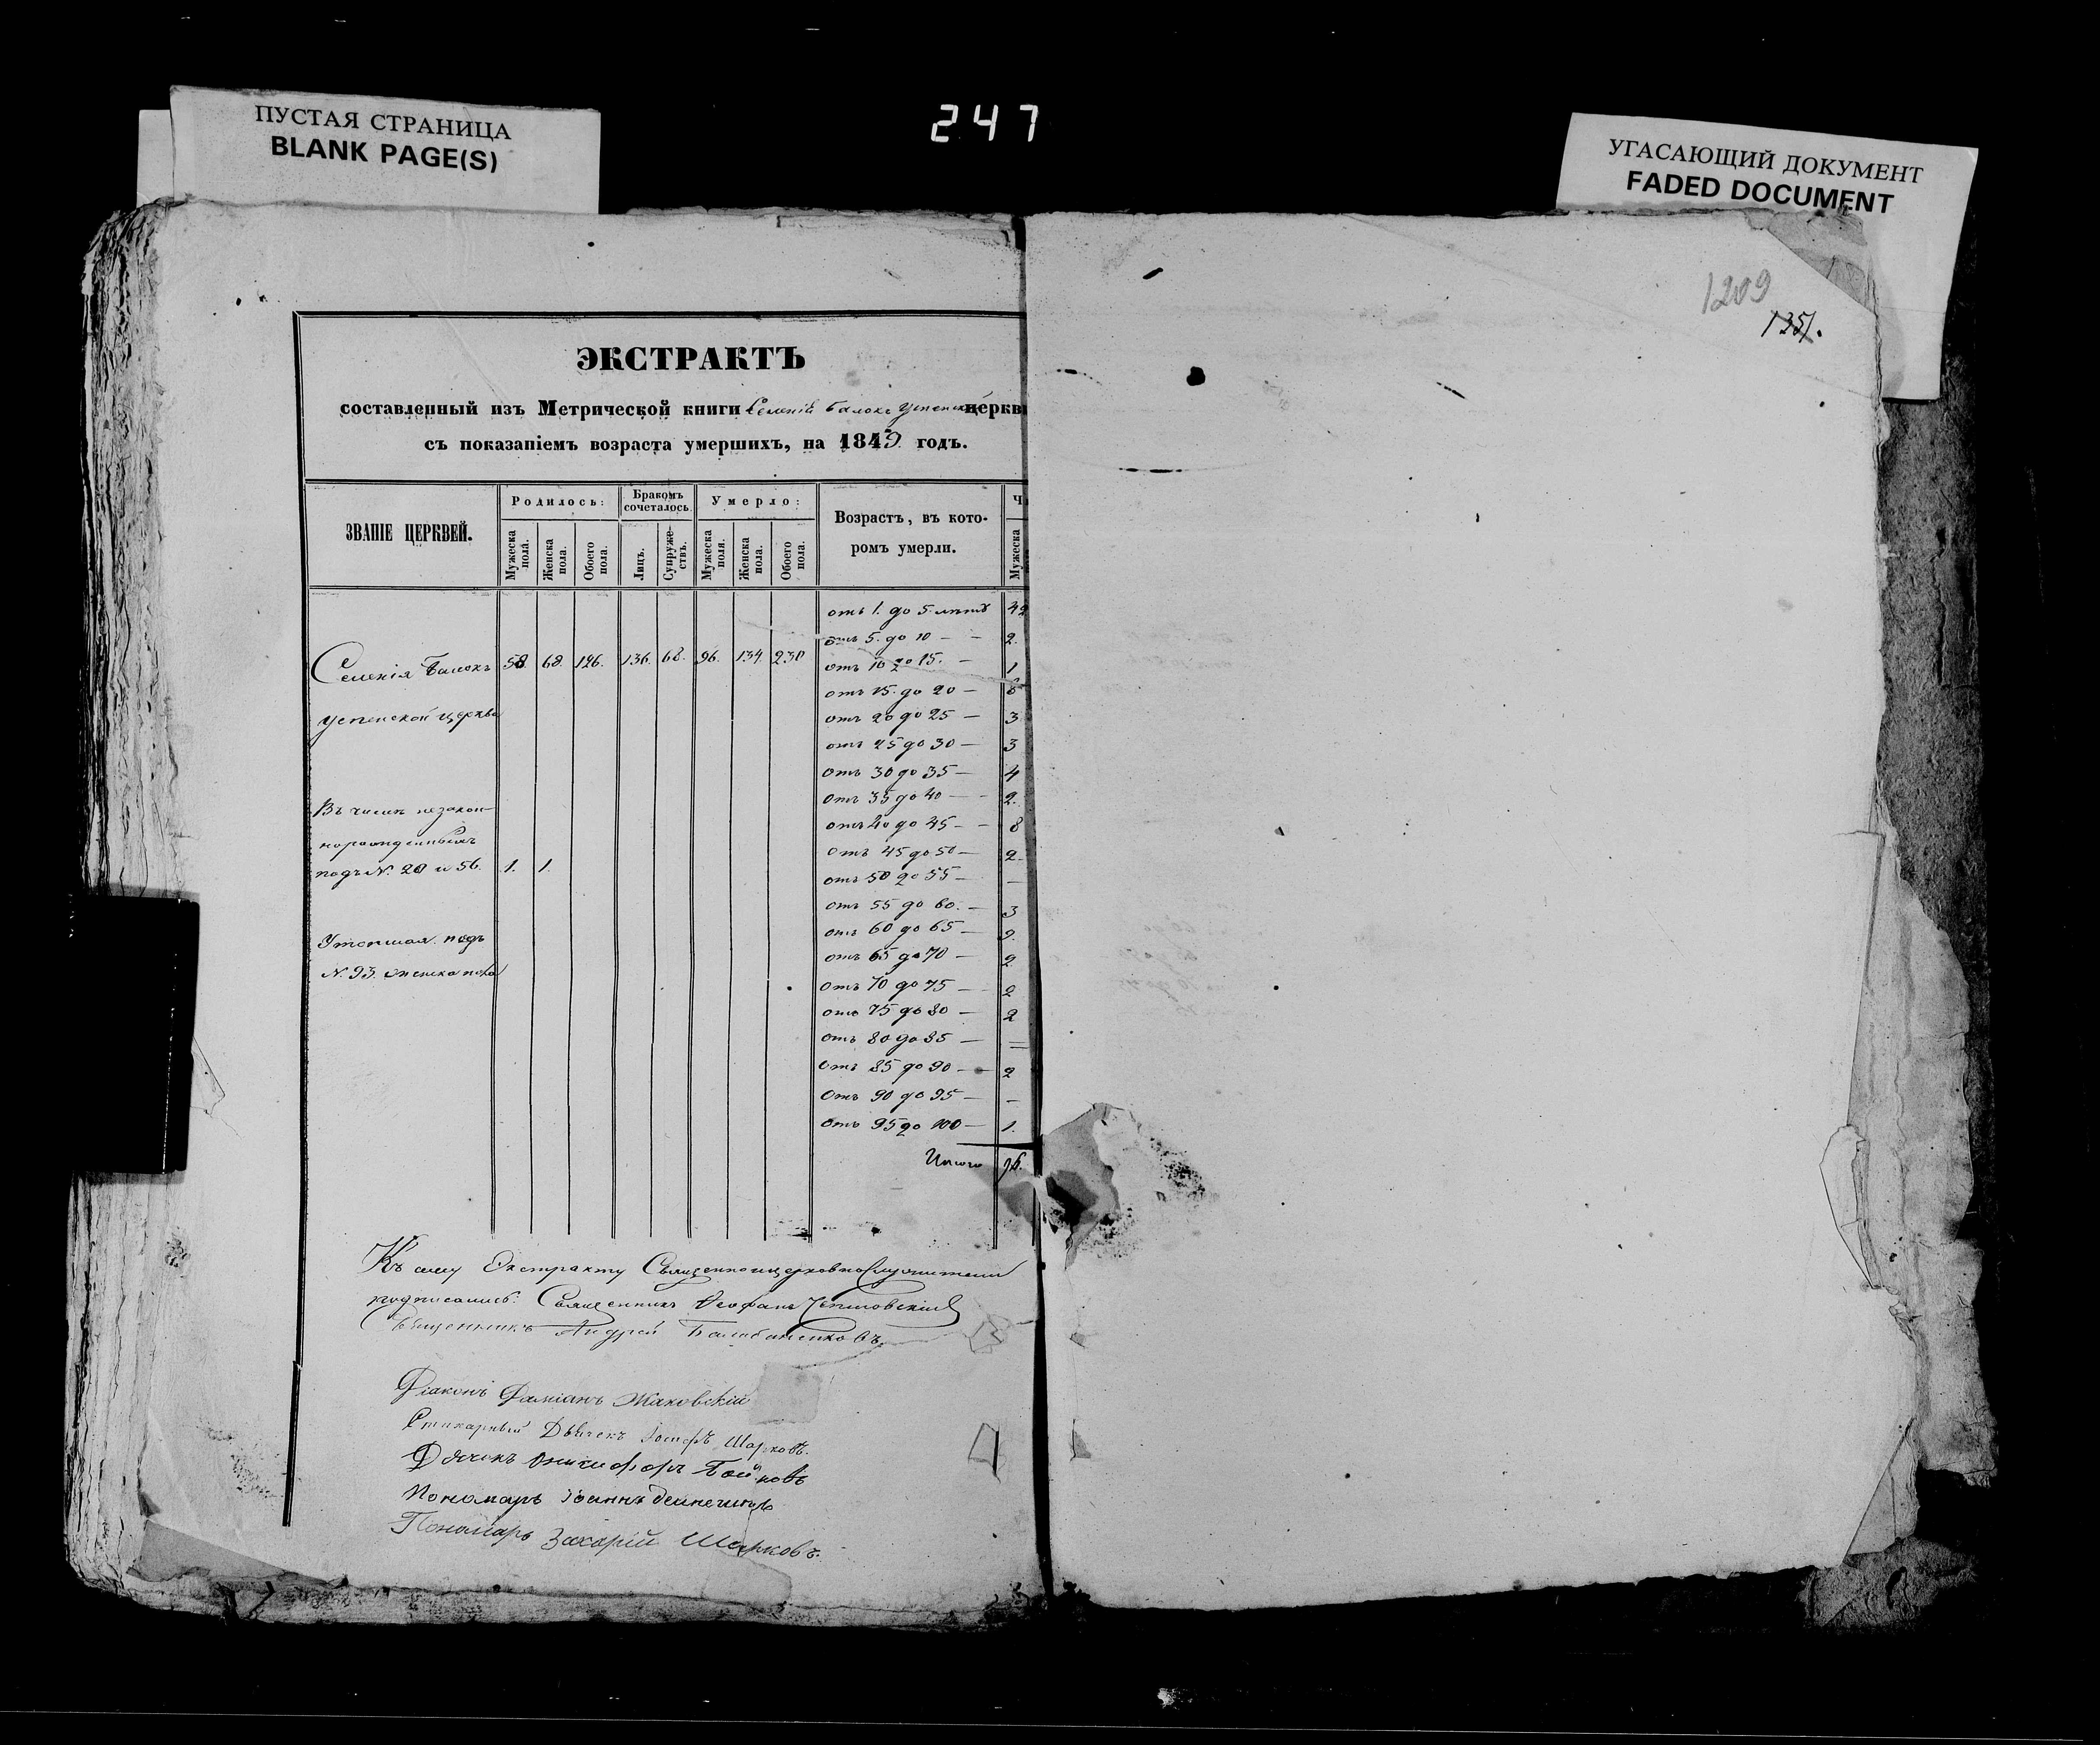 ПУСТАЯ СТРАНИЦА
BLANK PAGE(S)
247
УГАСАЮЩИЙ ДОКУМЕНТ
FADED DOCUMENT
1209
1351.
ЭКСТРАКТЪ
составленный изъ Метрической книги Селенія Балокъ Успенской церкви
съ показаніемъ возраста умершихъ, на 1849. годъ.
ЗВАНІЕ ЦЕРКВЕЙ.
Родилось:
Бракомъ сочеталось.
Умерло:
Возрастъ, въ кото-
ромъ умерли.
Ч
Мужеска пола.
Женска пола.
Обоего пола.
Лицъ.
Супруже-ствъ.
Мужеска пола.
Женска пола.
Обоего пола.
Мужеска
отъ 1. до 5. летъ 42
отъ 5. до 10 — — 2.
Селенія Балокъ 58. 68. 126. 136. 68. 96. 134. 230
отъ 10 до 15. — 1
отъ 15. до 20 — 6
Успенской церкви
отъ 20 до 25 — 3
отъ 25 до 30 — 3
отъ 30 до 35 — 4
отъ 35 до 40 — — 2.
Въ числе незакон-
отъ 40 до 45 — — 8
норожденныхъ
отъ 45 до 50 — 2
подъ №. 20 и 56. 1. 1.
отъ 50 до 55 — —
отъ 55 до 60. — 3
отъ 60 до 65 — 9.
Утопшая подъ
отъ 65 до 70 — 2
№. 93. женска пола
отъ 70 до 75 — 2
отъ 75 до 80 — 2
отъ 80 до 85 — =
отъ 85 до 90 — 2
отъ 90 до 95 — —
отъ 95 до 100 — 1.
Итого 96.
Къ сему Экстракту Священноцерковнослужители
подписались: Священникъ Феофанъ
Священникъ Андрей Балабаненковъ
Діаконъ Даміанъ Жаковскій
Стихарный Дьячекъ Іосифъ Шарковъ.
Дячекъ Онисифоръ Бойковъ
Пономарь Іоаннъ
Пономарь Захарій Шарковъ.